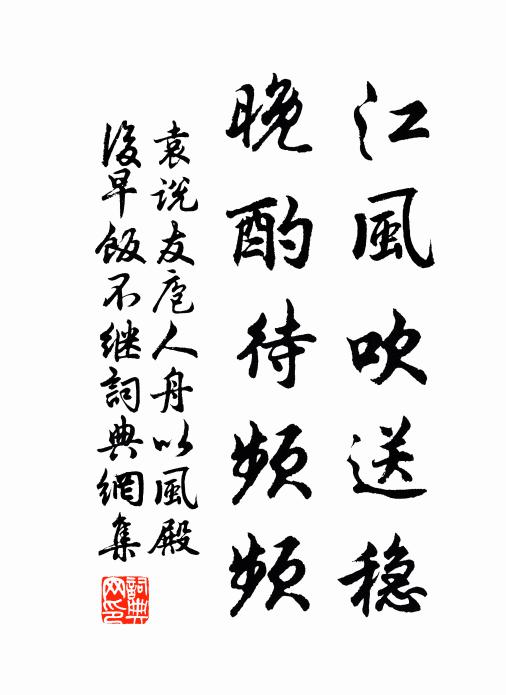 江風吹送穩
晚酌待頻頻
袁說友庖人舟以風殿
後早飯不繼詞典網集